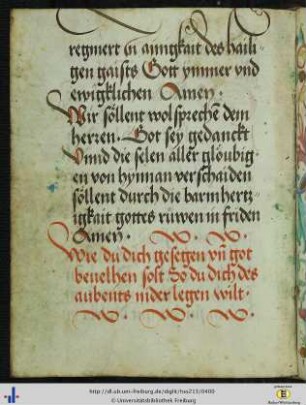 regniert in ainigkait des haili
gen gaists Gott ymmer vnd
ewigklichen Amen.
Wir söllent wol sprechē dem
herren. Got sey gedanckt
Vnnd die selen aller gloubig
en von hynnan verschaiden
söllent durch die barmhertz
igkait gottes rüwen in friden
Amen.
Wie du dich gesegen vn̄ got
beuelhen solt So du dich des
aubents nider legen wilt.
http://dl.ub.uni-freiburg.de/diglit/hs213/0400
© Universitätsbibliothek Freiburg